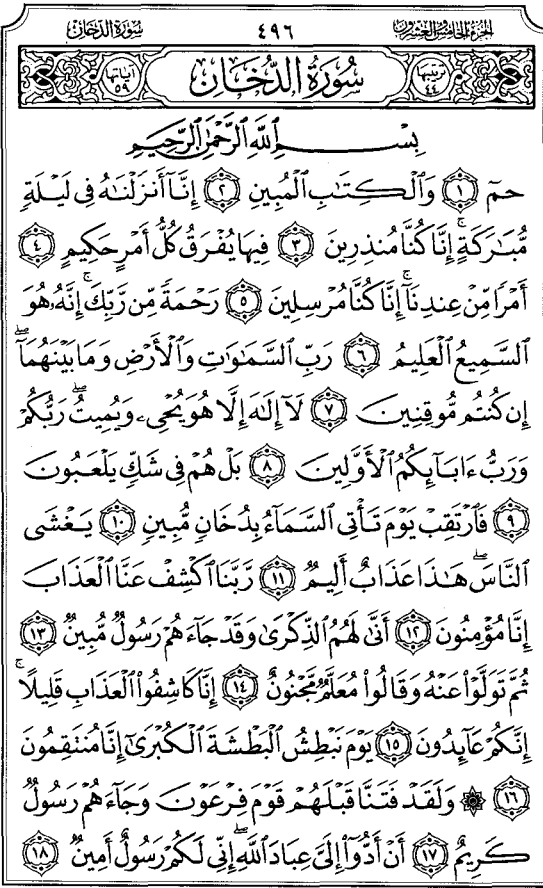 سُورَةُ الدُّخَانِ ٤٩٦ الجزء الخامس والعشرون
ترتيبها ٤٤ سُورَةُ الدُّخَانِ آياتها ٥٩
بِسْمِ ٱللَّهِ ٱلرَّحْمَٰنِ ٱلرَّحِيمِ
حمٓ ١ وَٱلْكِتَٰبِ ٱلْمُبِينِ ٢ إِنَّآ أَنزَلْنَٰهُ فِى لَيْلَةٍ
مُّبَٰرَكَةٍ ۚ إِنَّا كُنَّا مُنذِرِينَ ٣ فِيهَا يُفْرَقُ كُلُّ أَمْرٍ حَكِيمٍ ٤
أَمْرًا مِّنْ عِندِنَآ ۚ إِنَّا كُنَّا مُرْسِلِينَ ٥ رَحْمَةً مِّن رَّبِّكَ ۚ إِنَّهُۥ هُوَ
ٱلسَّمِيعُ ٱلْعَلِيمُ ٦ رَبِّ ٱلسَّمَٰوَٰتِ وَٱلْأَرْضِ وَمَا بَيْنَهُمَآ ۖ
إِن كُنتُم مُّوقِنِينَ ٧ لَآ إِلَٰهَ إِلَّا هُوَ يُحْىِۦ وَيُمِيتُ ۖ رَبُّكُمْ
وَرَبُّ ءَابَآئِكُمُ ٱلْأَوَّلِينَ ٨ بَلْ هُمْ فِى شَكٍّ يَلْعَبُونَ
٩ فَٱرْتَقِبْ يَوْمَ تَأْتِى ٱلسَّمَآءُ بِدُخَانٍ مُّبِينٍ ١٠ يَغْشَى
ٱلنَّاسَ ۖ هَٰذَا عَذَابٌ أَلِيمٌ ١١ رَّبَّنَا ٱكْشِفْ عَنَّا ٱلْعَذَابَ
إِنَّا مُؤْمِنُونَ ١٢ أَنَّىٰ لَهُمُ ٱلذِّكْرَىٰ وَقَدْ جَآءَهُمْ رَسُولٌ مُّبِينٌ ١٣
ثُمَّ تَوَلَّوْا۟ عَنْهُ وَقَالُوا۟ مُعَلَّمٌ مَّجْنُونٌ ١٤ إِنَّا كَاشِفُوا۟ ٱلْعَذَابِ قَلِيلًا ۚ
إِنَّكُمْ عَآئِدُونَ ١٥ يَوْمَ نَبْطِشُ ٱلْبَطْشَةَ ٱلْكُبْرَىٰٓ إِنَّا مُنتَقِمُونَ
١٦ ۞ وَلَقَدْ فَتَنَّا قَبْلَهُمْ قَوْمَ فِرْعَوْنَ وَجَآءَهُمْ رَسُولٌ
كَرِيمٌ ١٧ أَنْ أَدُّوٓا۟ إِلَىَّ عِبَادَ ٱللَّهِ ۖ إِنِّى لَكُمْ رَسُولٌ أَمِينٌ ١٨